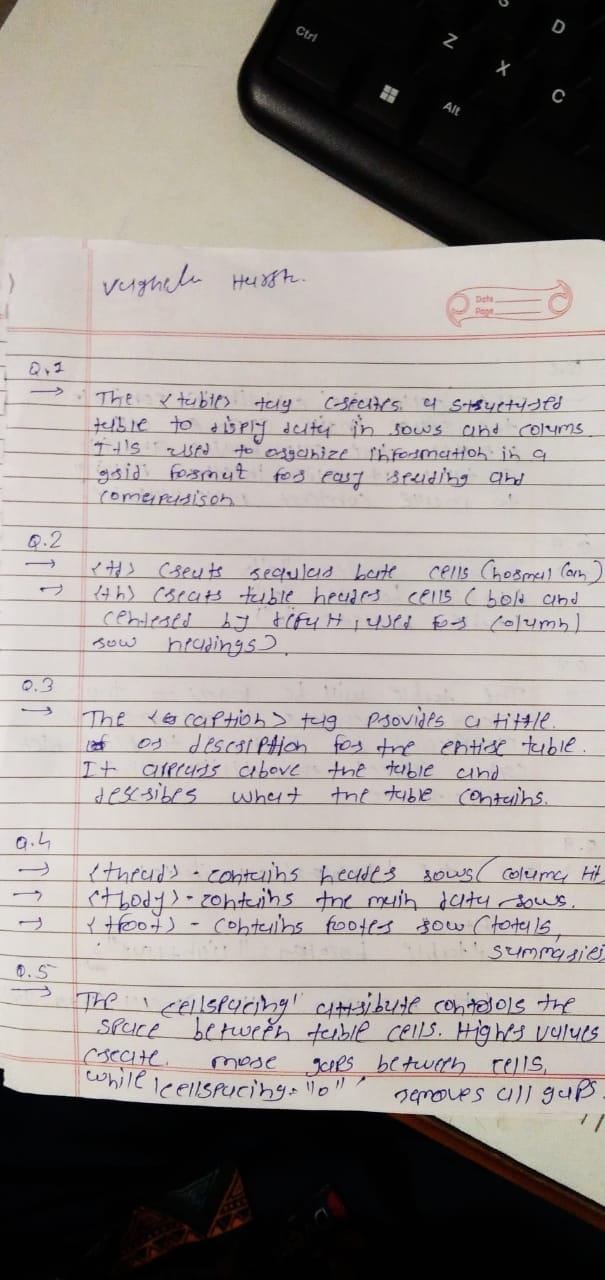 Ctrl
Alt
Z
X
C
D
S
Vaghela Harsh.
Date
Page
Q.1
→ The <table> tag creates a structured
table to disply data in rows and colums.
It is used to organize information in a
grid format for easy reading and
comeparison
Q.2
→ <td> creats regulard date cells (normal
→ <th> creats table header cells (bold and
centered by defult, used for column/
row headings).
Q.3
→ The <caption> tag provides a tittle.
or description for the entire table.
It appears above the table and
describes what the table contains.
Q.4
→ <thead> - contains header rows (column tit
→ <tbody> - contains the main data rows.
→ <tfoot> - contains footer row (totals,
summaries
Q.5
→ The 'cellspacing' attribute contorols the
space between table cells. Higher values
create more gaps between cells,
while 'cellspacing="0"' removes all gaps.